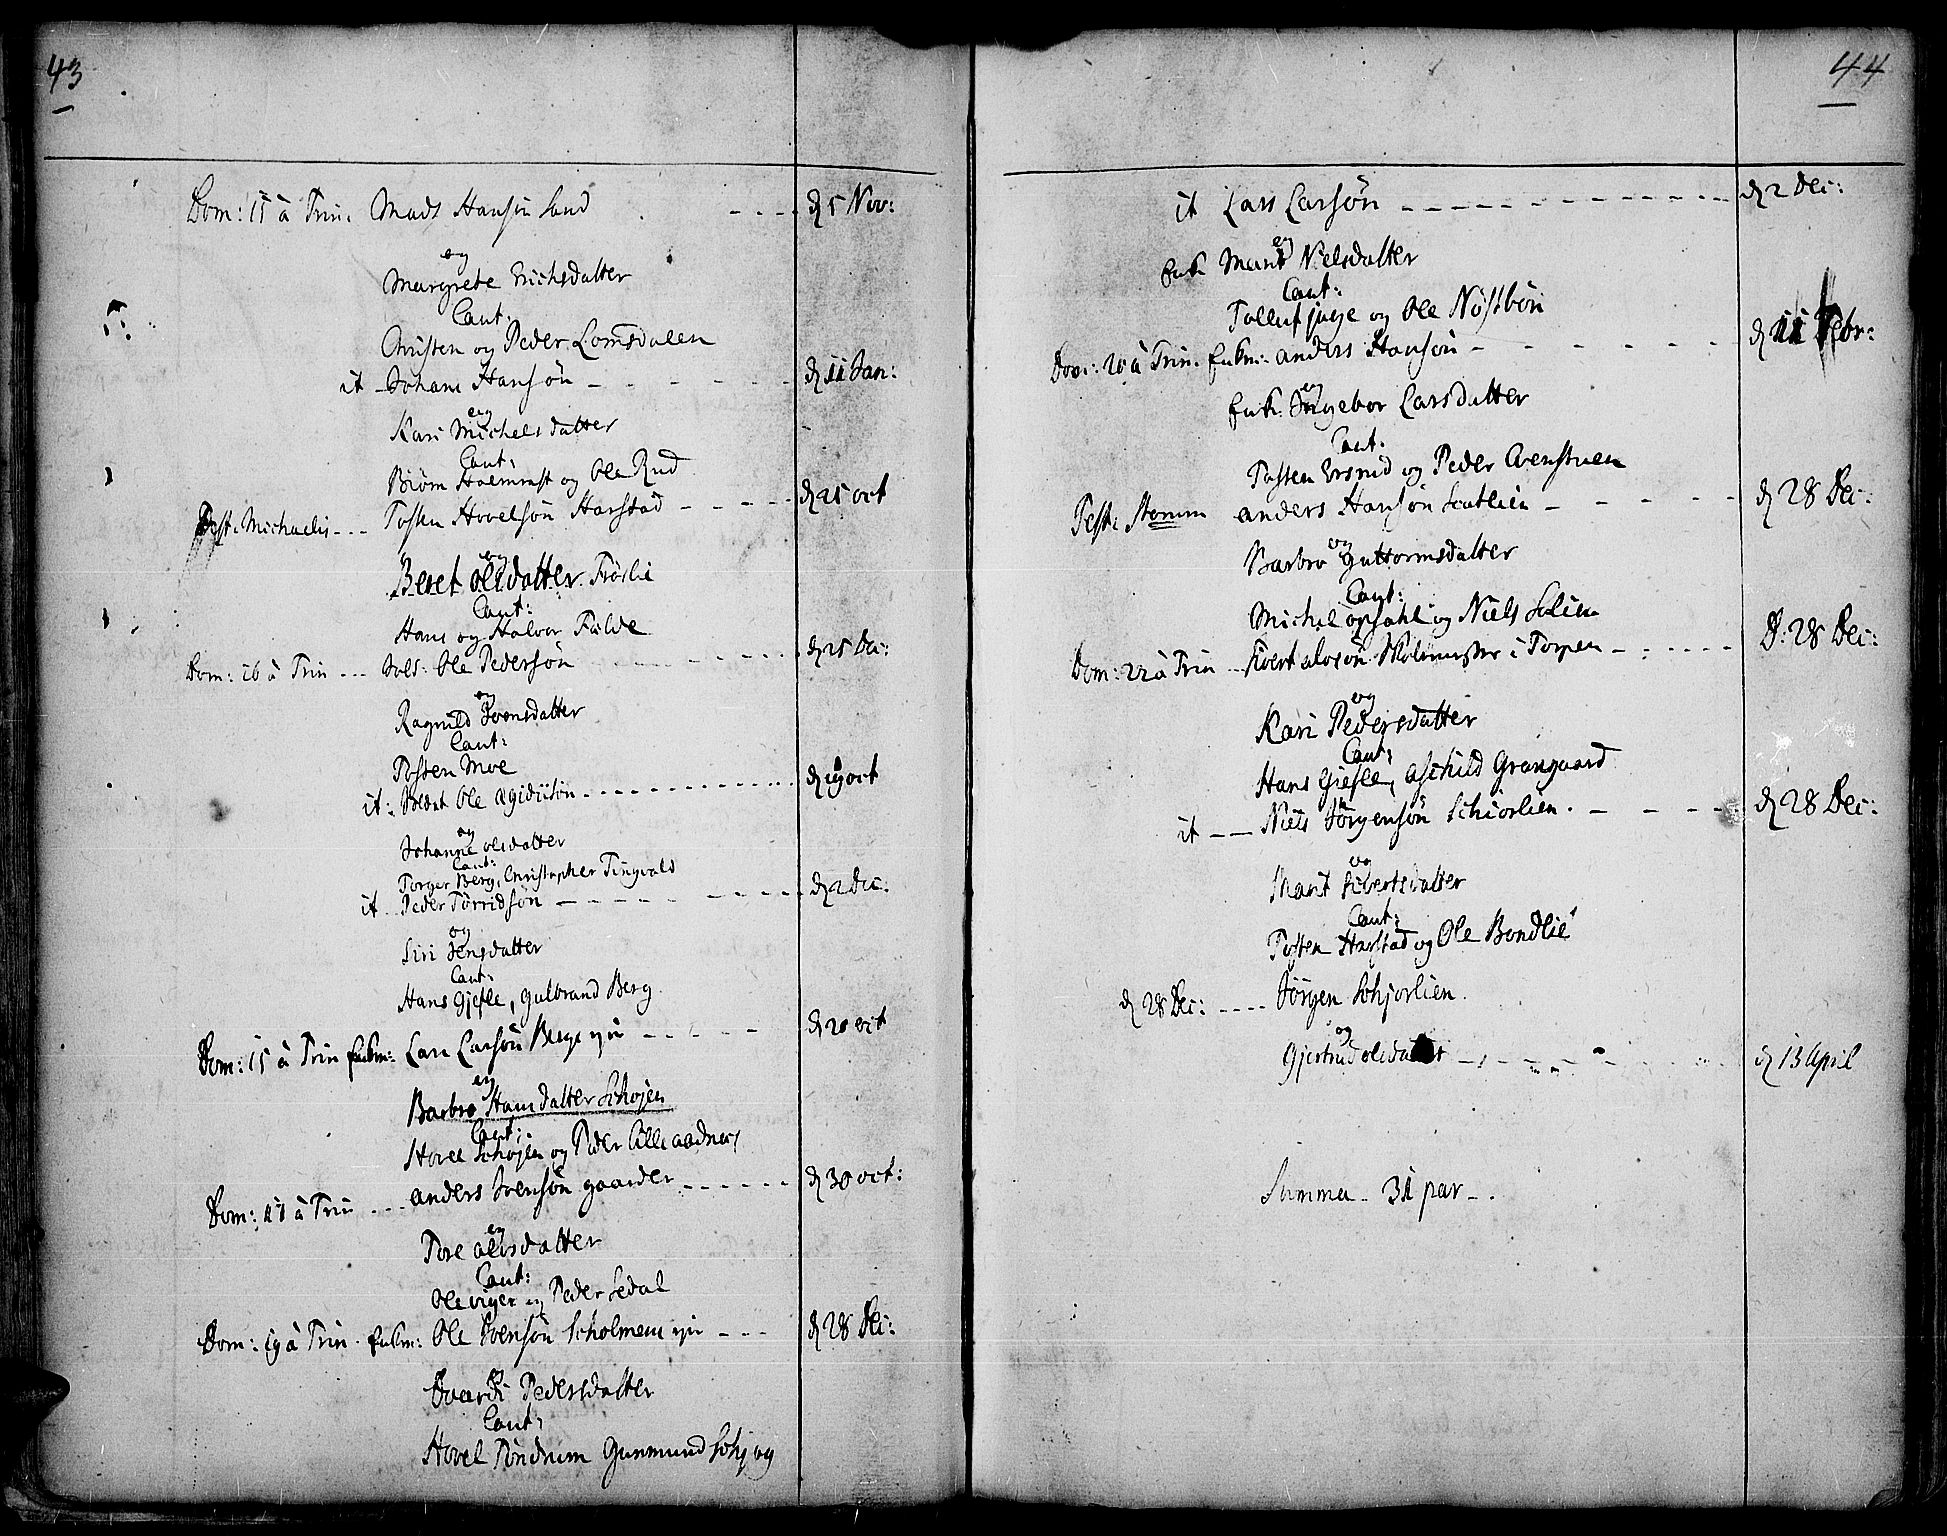 43
Dom: 15 à Trin. Mads Hansøn Sand ---- d 5 Nov:
og
Margrete Erichsdatter
Caut:
Christen og Peder Lomsdalen
it - Johan Hansøn - - - - - d 11 Jan:
og
Kari Michelsdatter
Caut:
Biørn og Ole Rud
Fest: Michaelis --- Tosten Hovelsøn Harstad - - - - d 25 oct
og
Beret Olsdatter Frøslie
Caut:
Hans og Halvor Falde
Dom: 16 à Trin --- Sols: Ole Pedersøn - - - - d 25 Dec:
og
Ragnild Svensdatter
Caut:
Tosten Moe
it: Ole Ægidiisøn - - - - - d 19 oct
og
Johanne olsdatter
Caut:
Torger Berg, Christopher Tingvald
it Peder Torridsøn - - - - - d 2 Dec:
og
Siri Jensdatter
Caut:
Hans Gjefle, Gulbrand Berg
Dom: 15 à Trin Enkm: Lars Larsøn - - - d 20 oct
og
Barbro Hansdatter Schøjen
Caut:
Hovel Schøjen og Peder Lille
Dom: 17 à Trin --- anders Svensøn gaarder ------ d 30 oct:
og
Tore olsdatter
Caut:
Ole viger og Peder Sedal
Dom: 19 à Trin. Enkm: Ole Svensøn --- d 28 Dec:
og
Pedersdatter
Caut:
Hovel Tøndrum Gunmund
44
it Lars Larsøn - - - - - - d 2 Dec:
og
Enk: Marit Nielsdatter
Caut:
og Ole Nøstbøn
Dom: 20 à Trin. Enkm: anders Hansøn - - - - - d 11 Febr:
og
Enk: Ingebor Larsdatter
Caut:
Tosten Ersrud og Peder
Fest: anders Hansøn - - - - d 28 Dec:
og
Barbro guttormsdatter
Caut:
Michel opsahl og Niels
Dom: 22 à Trin -- Sivert olosøn i Torpen - - - - - D: 28 Dec:
og
Kari Pedersdatter
Caut:
Hans Giefle, Aschild Grangaard
it -- Niels Jørgensøn Schiørlien. - - - - d 28 Dec:
og
Marit Sivertsdatter
Caut:
Tosten Harstad og Ole Bondlie
d 28 Dec: ---- Jørgen Schjorlien.
og
Gjertrud olsdatter - - - - - d 13 April
Summa - 31 par -.